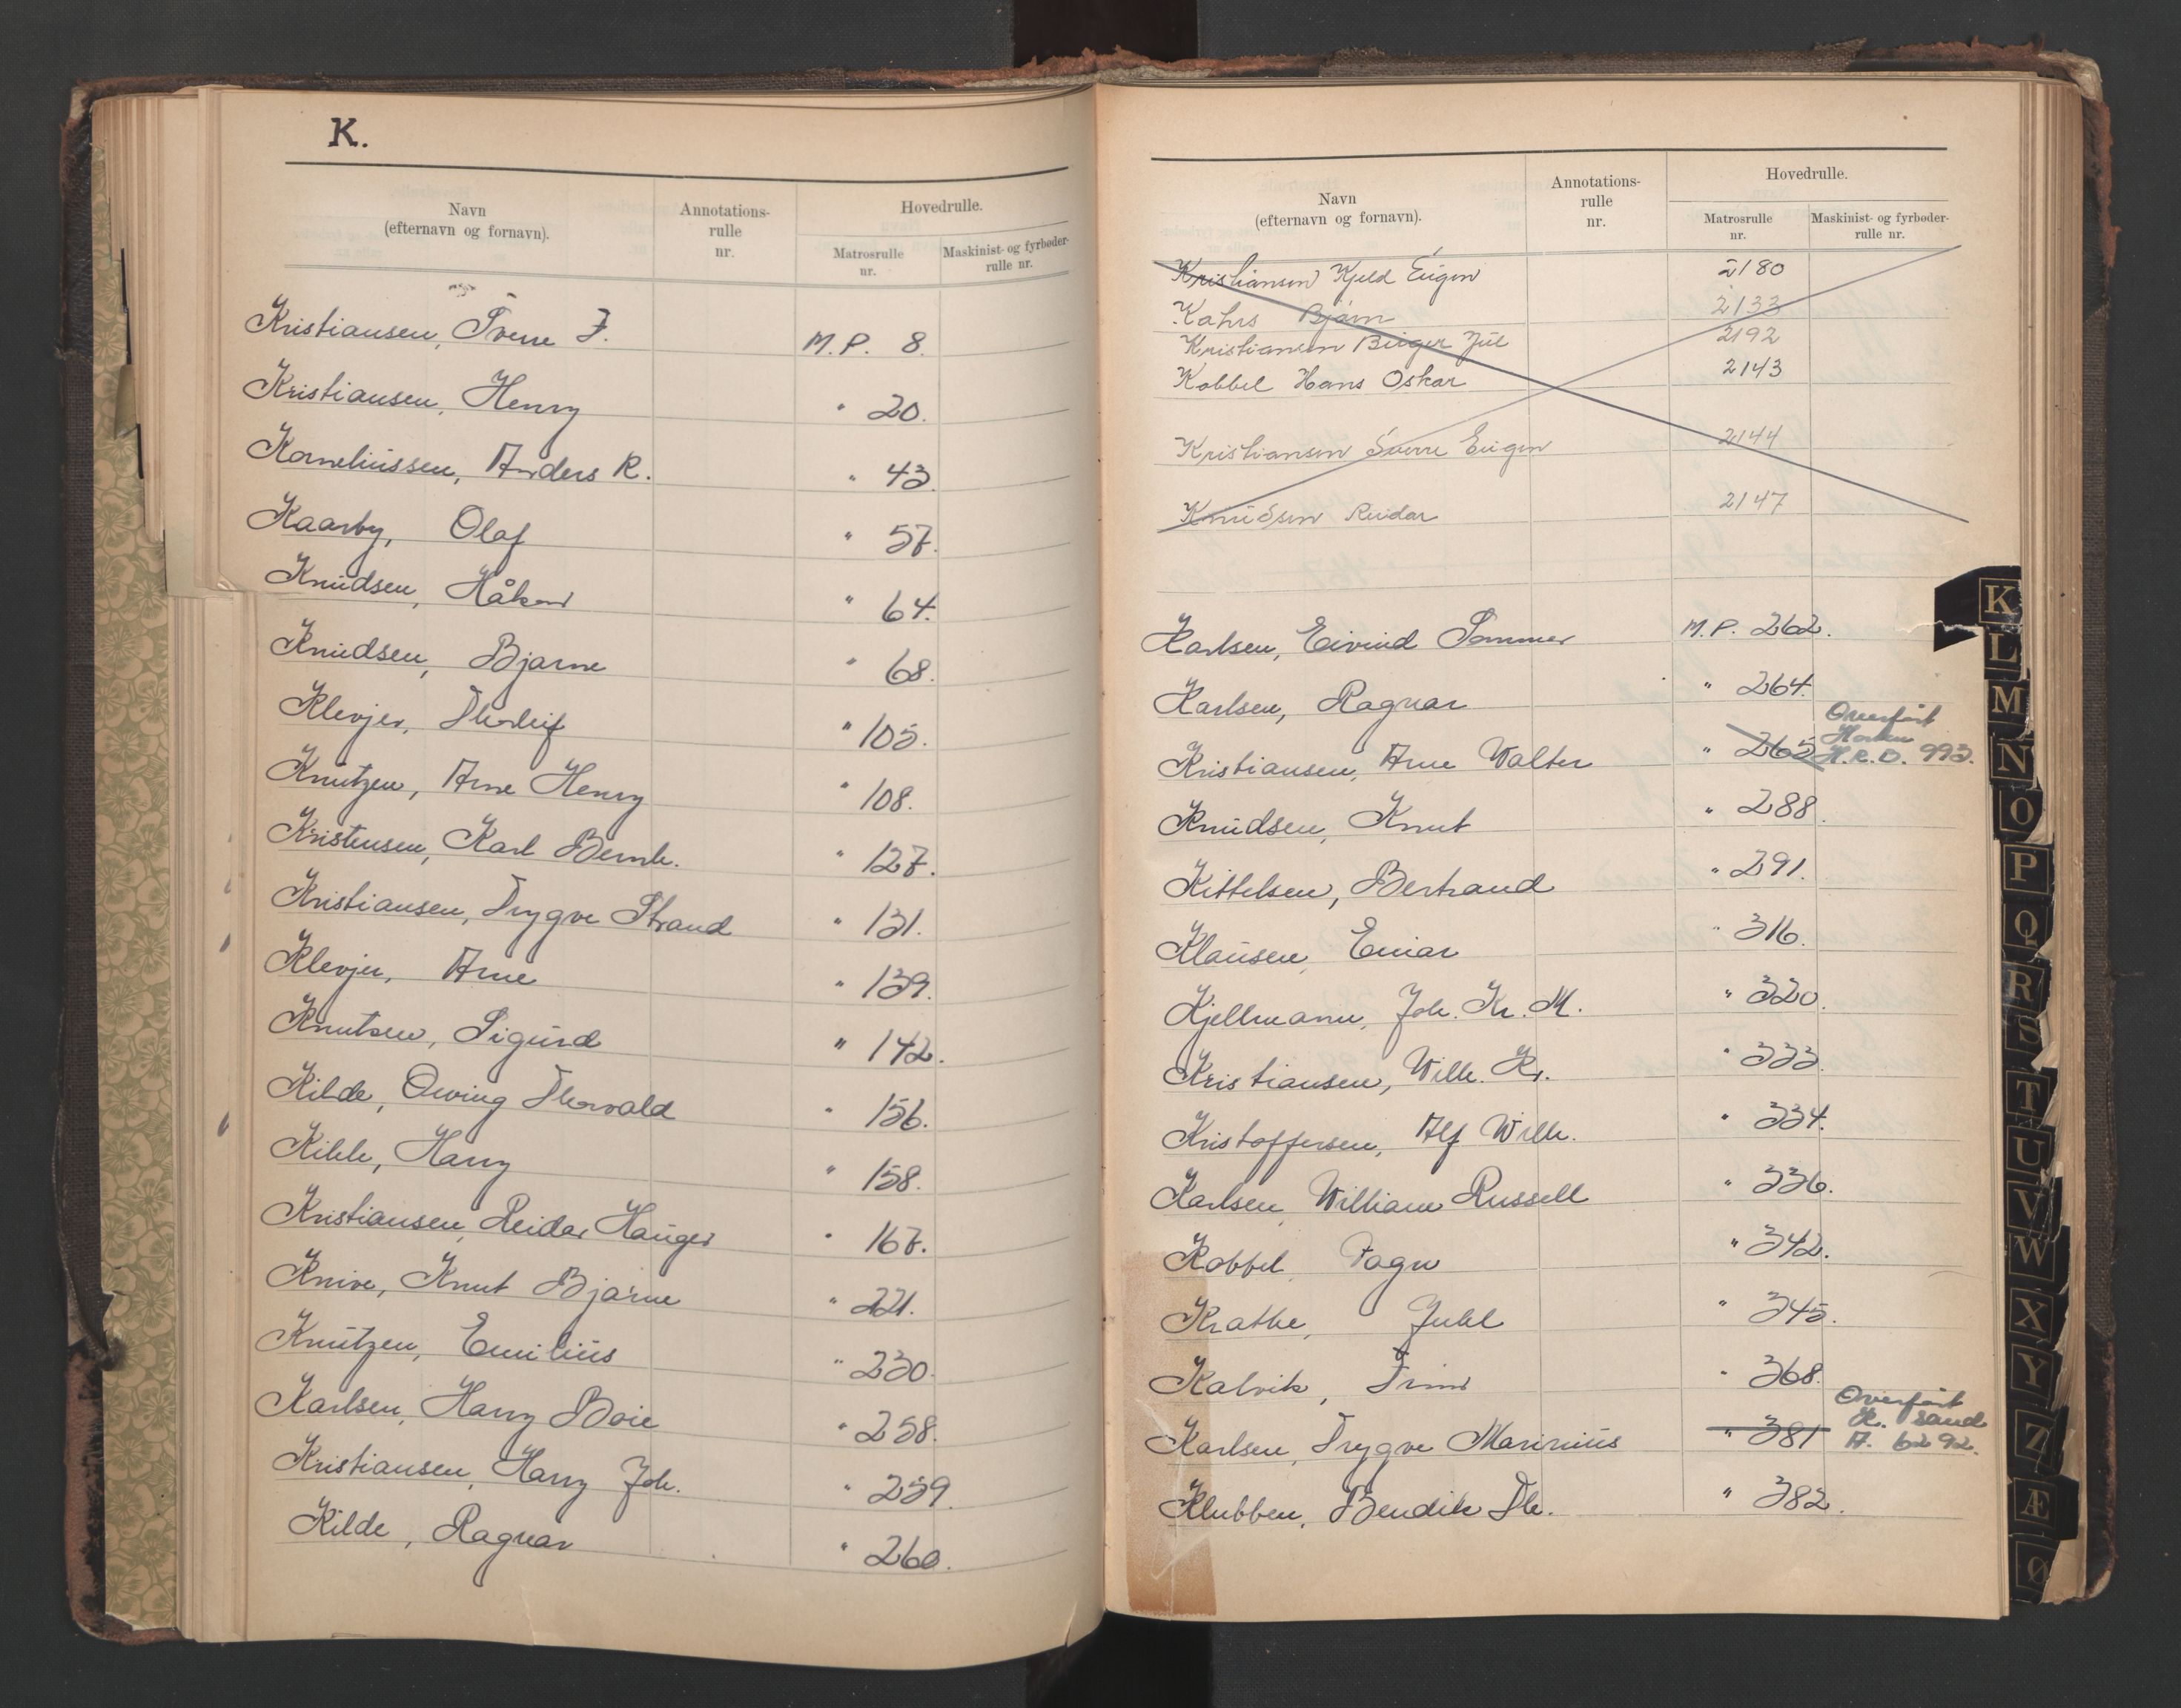 K.
Navn
(efternavn og fornavn).
Annotations-
rulle
nr.
Hovedrulle.
Matrosrulle
nr.
Maskinist- og fyrbøder-
rulle nr.
Kristiansen, Sverre J. M.P. 8.
Kristiansen, Henry " 20.
Korneliussen, Anders R. " 43.
Kaarby, Olaf " 57.
Knudsen, Håkon " 64.
Knudsen, Bjarne " 68.
Klevjer, Thorleif " 105.
Knutzen, Arne Henry " 108.
Kristensen, Karl Bernh. " 127.
Kristiansen, Trygve Strand " 131.
Klevjer, Arne " 139.
Knutsen, Sigurd " 142.
Kilde, Thorvald " 156.
Harry " 158.
Kristiansen, Reidar Hauger " 167.
Knive, Knut Bjarne " 221.
Knutzen, Emilius " 230.
Karlsen, Harry Boie " 258.
Kristiansen, Harry Joh. " 259.
Kilde, Ragnar " 260.
Navn
(efternavn og fornavn).
Annotations-
rulle
nr.
Hovedrulle.
Matrosrulle
nr.
Maskinist- og fyrbøder-
rulle nr.
Kristiansen Kjeld Eugen 2180
Kahrs Bjørn 2133
Kristiansen Birger Jul 2192
Kobbel Hans Oskar 2143
Kristiansen Sverre Eugen 2144
Knudsen Reidar 2147
Karlsen, Eivind Sommer M.P. 262.
Karlsen, Ragnar " 264.
Overført
Horten
Kristiansen, Arne Walter " 265 H.R.O. 993.
Knudsen, Knut " 288.
Kittelsen, Bertrand " 291.
Klausen, Einar " 316.
Kjellmann, Joh. Kr. M. " 320.
Kristiansen, Wilh. Kr. " 333.
Kristoffersen, Alf Wilh. " 334.
Karlsen, William Russell " 336.
Kobbel, " 342.
Krathe, Juhl " 345.
Kalvik, Finn " 368.
Overført
K. sand
Karlsen, Trygve Marinius " 381 A. 6292.
Klubben, Bendik Th. " 382.
K
L
M
N
O
P
Q
R
S
T
U
V
W
X
Y
Z
Æ
Ø